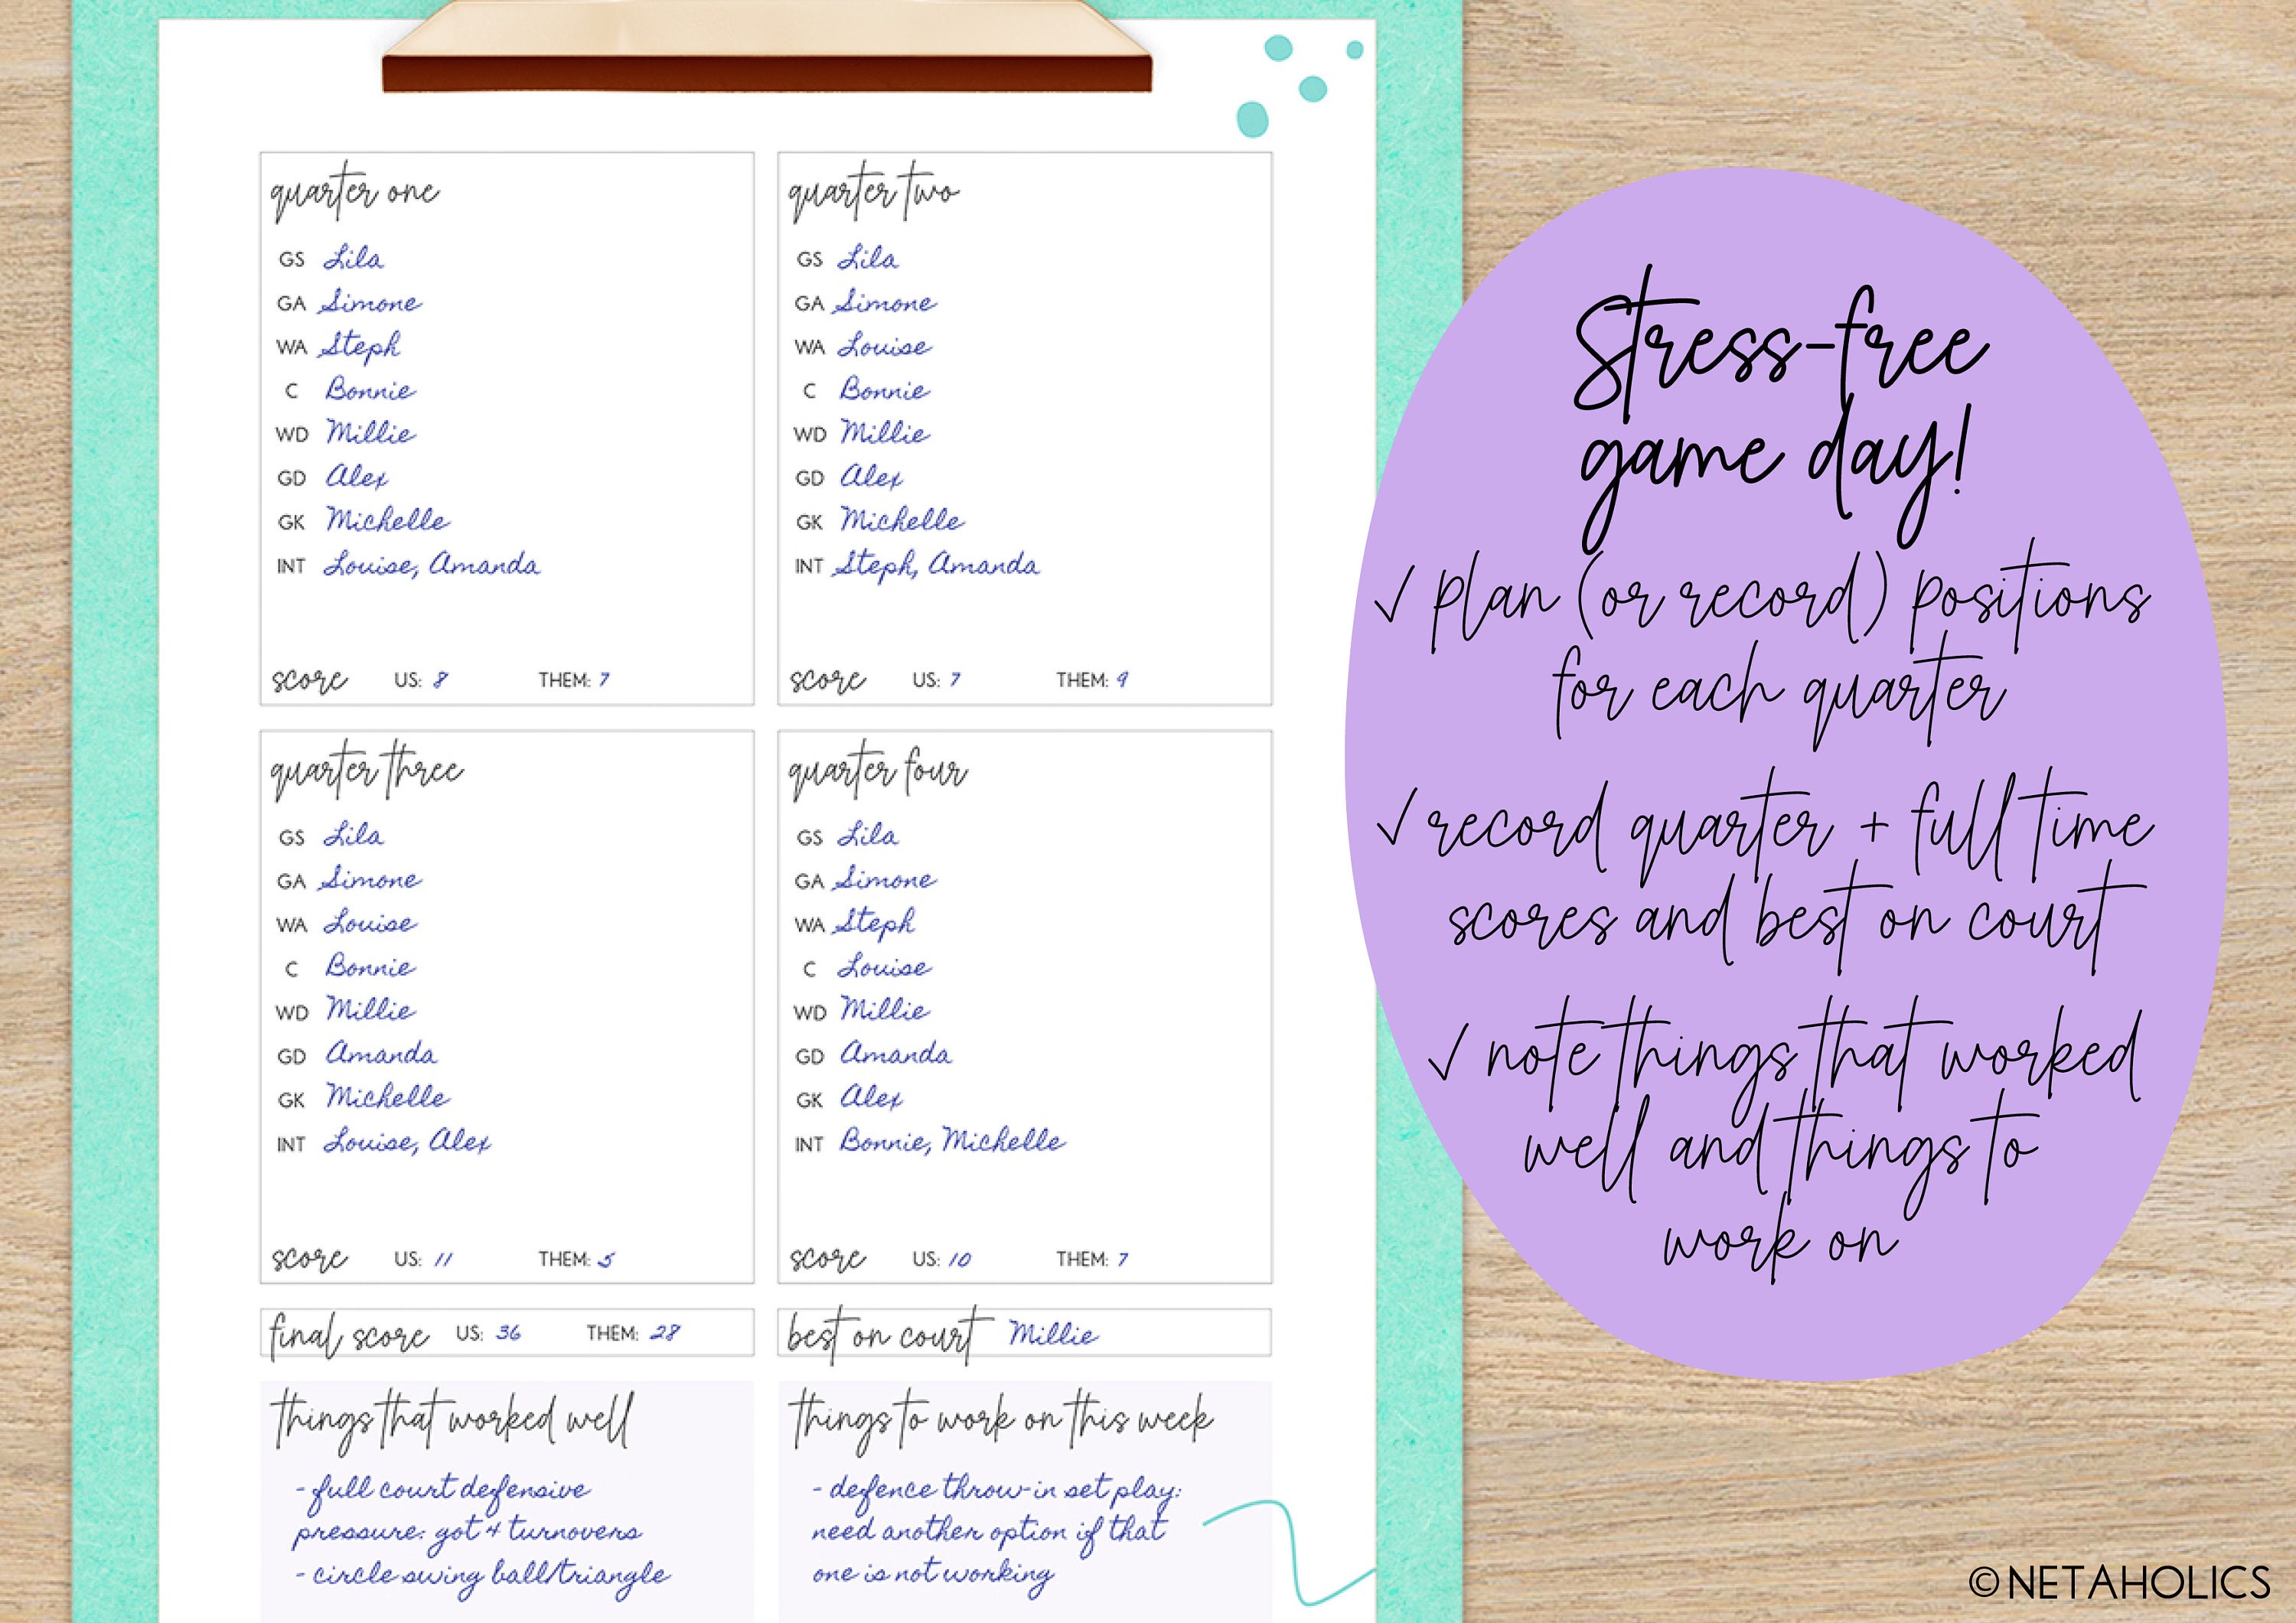 quarter one
GS Lila
GA Simone
WA Steph
C Bonnie
WD Millie
GD Alex
GK Michelle
INT Louise, Amanda
score US: 8 THEM: 7
quarter two
GS Lila
GA Simone
WA Louise
C Bonnie
WD Millie
GD Alex
GK Michelle
INT Steph, Amanda
score US: 7 THEM: 9
quarter three
GS Lila
GA Simone
WA Louise
C Bonnie
WD Millie
GD Amanda
GK Michelle
INT Louise, Alex
score US: 11 THEM: 5
quarter four
GS Lila
GA Simone
WA Steph
C Louise
WD Millie
GD Amanda
GK Alex
INT Bonnie, Michelle
score US: 10 THEM: 7
final score US: 36 THEM: 28
best on court Millie
things that worked well
- full court defensive
pressure: got 4 turnovers
- circle swing ball/triangle
things to work on this week
- defence throw-in set play:
need another option if that
one is not working
Stress-free
game day!
✓ plan (or record) positions
for each quarter
✓ record quarter + full time
scores and best on court
✓ note things that worked
well and things to
work on
© NETAHOLICS